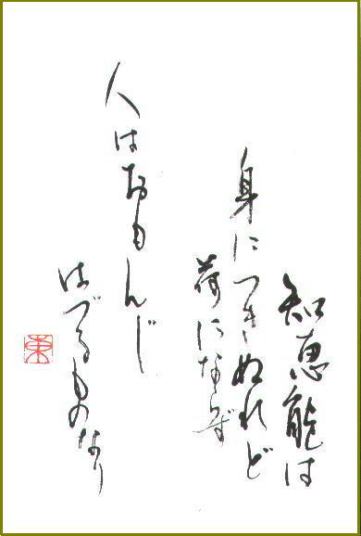 知恵能は
身につきぬれど
荷にならず
人はおもんじ
はづるものなり
東